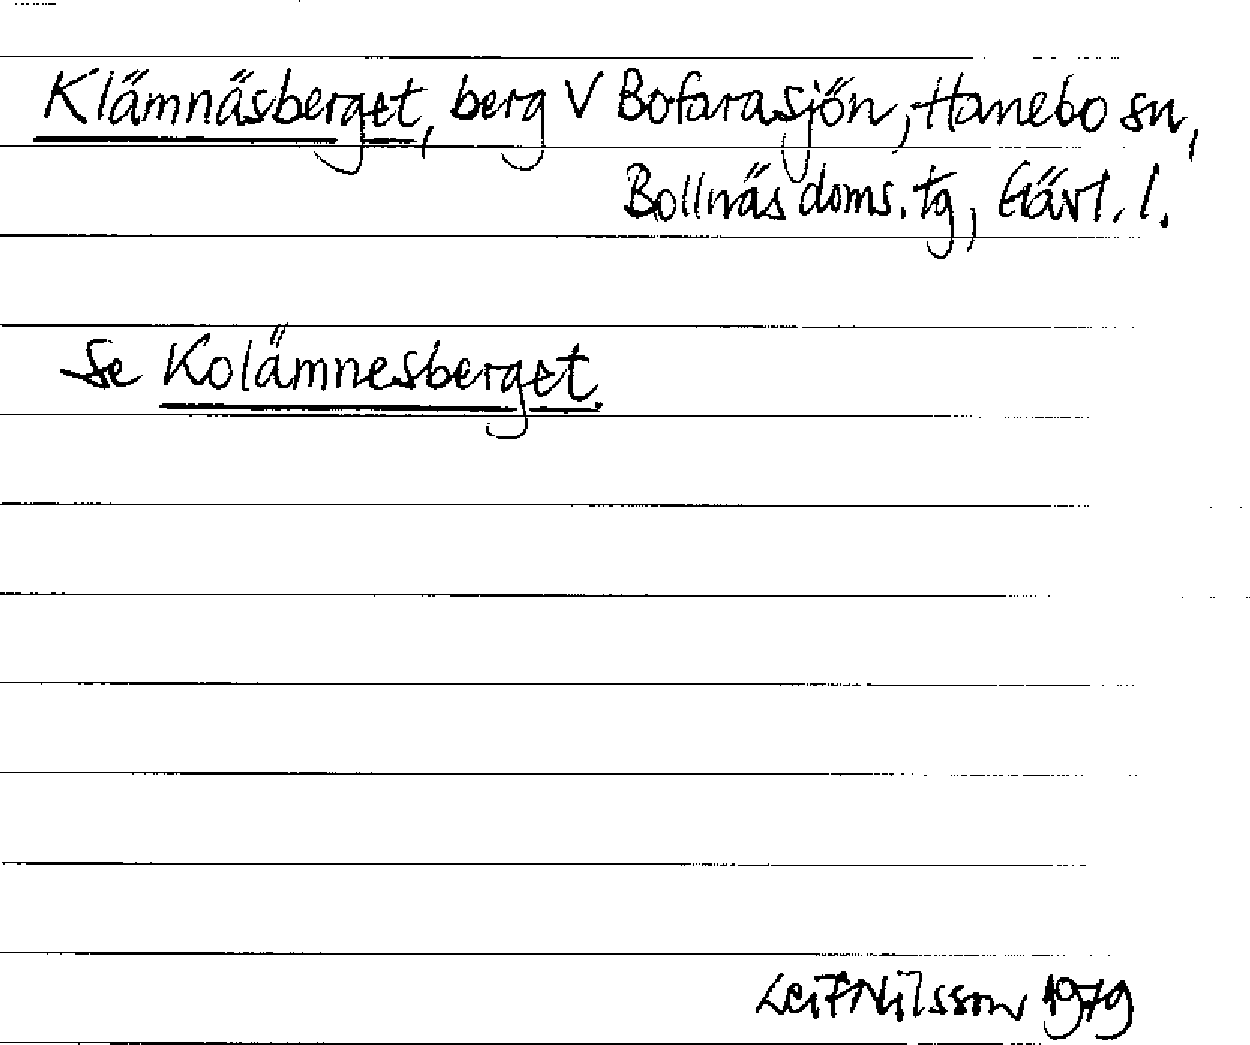 Klämnäsberget, berg V Bofarasjön, Hanebo sn,
Bollnäs doms. tg, Gävl. l.
Se Kolämnesberget.
Leif Nilsson 1979